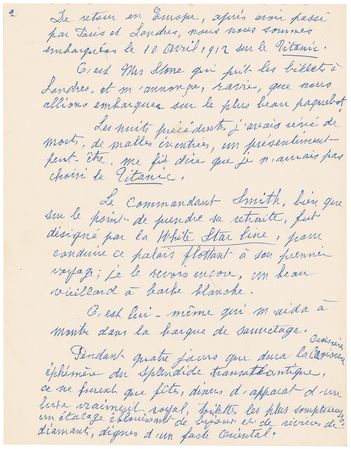 2
De retour en Europe, après avoir passé
par Paris et Londres, nous nous sommes
embarquées le 10 Avril 1912 sur le Titanic.
C'est Mrs Stone qui prit les billets à
Londres, et m'annonça, ravie, que nous
allions embarquer sur le plus beau paquebot.
Les nuits précédentes j'avais rêvé de
morts, de malles éventrées, un pressentiment
peut-être, me fit dire que je n'aurais pas
choisi le Titanic.
Le Commandant Smith, bien que
sur le point de prendre sa retraite, fut
désigné par la White Star line, pour
conduire ce palais flottant à son premier
voyage; je le revois encore, un beau
vieillard à barbe blanche.
C'est lui-même qui m'aida à
monter dans la barque de sauvetage.
Pendant quatre jours que dura la Croisière
éphémère du splendide transatlantique,
ce ne furent que fêtes, diners d'apparat d'un
luxe vraiment royal, toilettes les plus somptueuses,
un étalage éblouissant de bijoux et de rivières de
diamants, dignes d'un faste Oriental.